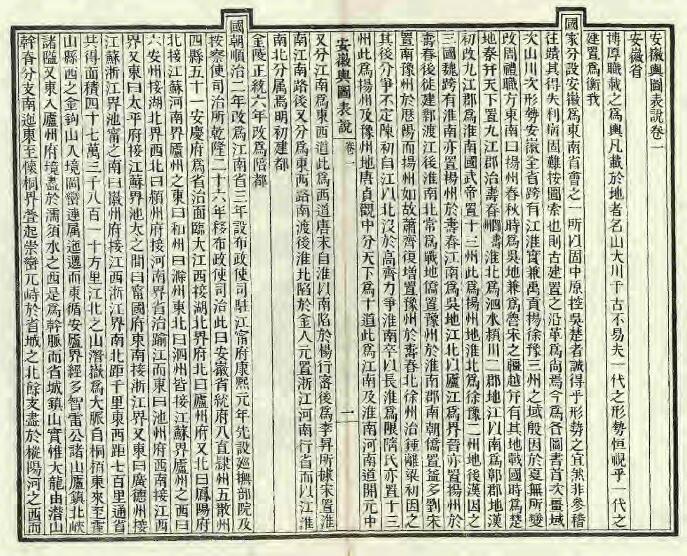 安徽輿圖表說卷一
安徽省
博厚職載之爲輿凡載於地者名山大川千古不易夫一代之形勢恒視乎一代之
建置爲衡我
國家分設安徽爲東南省會之一所以固中原控吳楚者誠得乎形勢之宜無非參稽
往蹟其得失利病固難按圖索也則古建置之沿革爲尚焉今爲各圖書首次量域
次山川次形勢安徽全省跨有江淮實兼禹貢揚徐豫三州之域殷因於夏無所變
改周禮職方東南曰揚州春秋時爲吳地兼爲魯宋之疆越幷有其地戰國時爲楚
地秦幷天下置九江郡治壽春 淮北爲泗水潁川二郡地江以南爲鄣郡地漢
初改九江郡爲淮南國武帝置十三州此爲揚州地淮北爲徐豫二州地後漢因之
三國魏跨有淮南亦置揚州於壽春江南爲吳地江北以廬江爲界晉亦置揚州於
壽春後徙建鄴渡江後淮南北常爲戰地僑置豫州於淮南郡南朝僑置益多劉宋
置南豫州於歷陽而揚州如故蕭齊復增置豫州於壽春北徐州治鍾離梁初因之
其後分爭不定陳初自江以北沒於高齊力爭淮南卒以長淮爲限隋氏亦置十三
州此爲揚州及豫州地唐貞觀中分天下爲十道此爲江南及淮南河南道開元中
安徽輿圖表說 卷一 一
又分江南爲東西道此爲西道唐末自淮以南陷於楊行密後爲李昇所據宋置淮
南江南路後又分爲東西路南渡後淮北陷於金人元置浙江河南行省而以江淮
南北分屬焉明初建都
金陵正統六年改爲陪都
國朝順治二年改爲江南省三年設布政使司駐江甯府康熙元年先設巡撫部院及
按察使司治所乾隆二十六年移布政使司治此曰安徽省統府八直隸州五散州
四縣五十一安慶府爲省治面臨大江西接湖北界府北曰廬州府又北曰鳳陽府
北接江蘇河南界廬州之東曰和州曰滁州東北曰泗州皆接江蘇界廬州之西曰
六安州接湖北界西北曰潁州府接河南界省治踰江而東曰池州府西南接江西
界又東曰太平府接江蘇界池太之間曰甯國府東南接浙江界又東曰廣德州接
江蘇浙江界池甯之南曰徽州府接江西浙江界南北距千里東西距七百里通省
共得面積四十七萬三千八百一十方里江北之山潛嶽爲大脈自桐栢東來至霍
山縣西之金鉤山入境岡巒連屬迤邐而東循安廬界經多智雷公諸山廬鎮北峽
諸隘又東入廬州府境盡於濡須水之西是爲幹脈而省城鎮山實維大龍由潛山
幹脊分支南迤東至懷桐界疊起崇巒元峙於省城之北餘支盡於樅陽河之西而